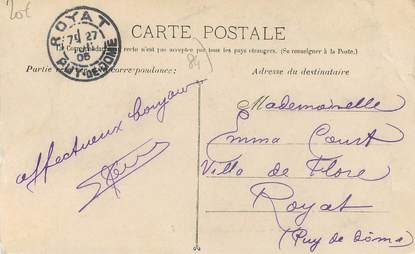 20€
CARTE POSTALE
La Correspondance au recto n'est pas acceptée par tous les pays étrangers. (Se renseigner à la Poste.)
Partie réservée à la correspondance:
Adresse du destinataire
ROYAT
7 27
06
PUY-DE-DOME
84
affectueux bonjour
Mademoiselle
Emma Court
Villa de Flore
Royat
(Puy de Dôme)